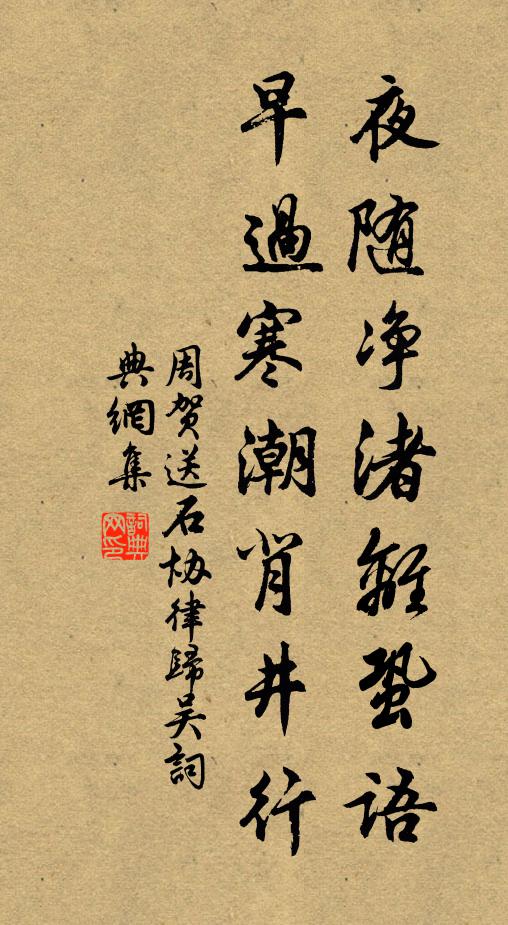 夜随净渚離蛩語
早過寒潮背井行
周贺送石协律歸吴詞
典網集
詞典網印